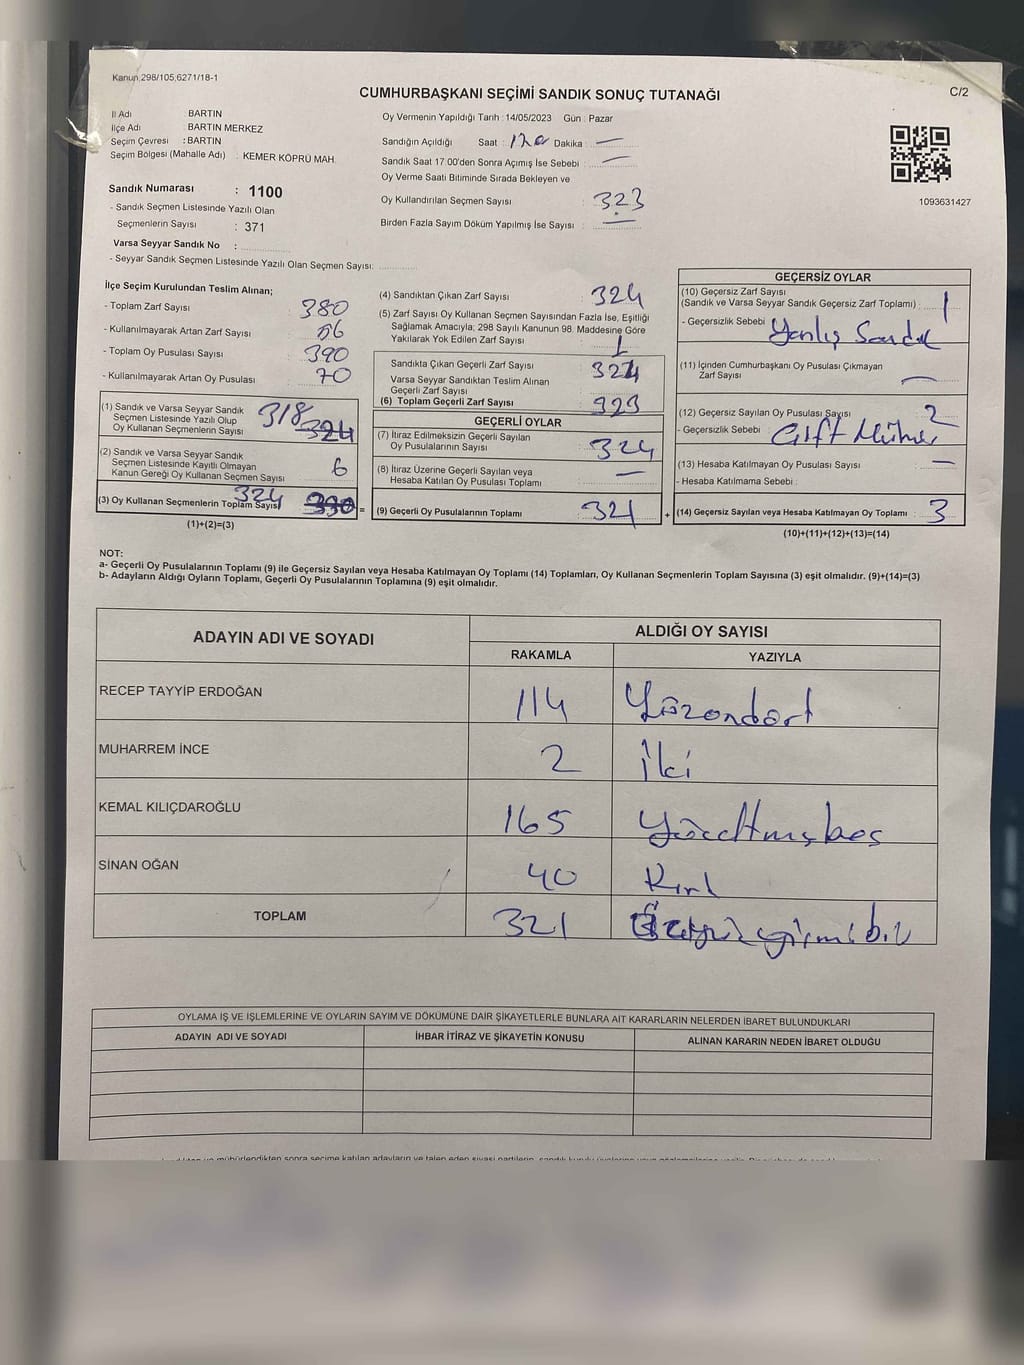 Kanun 298/105,6271/18-1
C/2
CUMHURBAŞKANI SEÇİMİ SANDIK SONUÇ TUTANAĞI
İl Adı : BARTIN
İlçe Adı BARTIN MERKEZ
Seçim Çevresi : BARTIN
Seçim Bölgesi (Mahalle Adı) : KEMER KÖPRÜ MAH.
Sandık Numarası : 1100
- Sandık Seçmen Listesinde Yazılı Olan
Seçmenlerin Sayısı : 371
Varsa Seyyar Sandık No :
- Seyyar Sandık Seçmen Listesinde Yazılı Olan Seçmen Sayısı:
Oy Vermenin Yapıldığı Tarih : 14/05/2023 Gün : Pazar
Sandığın Açıldığı Saat : Dakika : —
Sandık Saat 17:00'den Sonra Açımış İse Sebebi : —
Oy Verme Saati Bitiminde Sırada Bekleyen ve
Oy Kullandırılan Seçmen Sayısı : 323
Birden Fazla Sayım Döküm Yapılmış İse Sayısı : —
1093631427
İlçe Seçim Kurulundan Teslim Alınan;
- Toplam Zarf Sayısı : 380
- Kullanılmayarak Artan Zarf Sayısı : 56
- Toplam Oy Pusulası Sayısı : 390
- Kullanılmayarak Artan Oy Pusulası : 70
(1) Sandık ve Varsa Seyyar Sandık
Seçmen Listesinde Yazılı Olup
Oy Kullanan Seçmenlerin Sayısı 318 324
(2) Sandık ve Varsa Seyyar Sandık
Seçmen Listesinde Kayıtlı Olmayan
Kanun Gereği Oy Kullanan Seçmen Sayısı : 6
(3) Oy Kullanan Seçmenlerin Toplam Sayısı 324 330 =
(1)+(2)=(3)
(4) Sandıktan Çıkan Zarf Sayısı : 324
(5) Zarf Sayısı Oy Kullanan Seçmen Sayısından Fazla İse, Eşitliği
Sağlamak Amacıyla; 298 Sayılı Kanunun 98. Maddesine Göre
Yakılarak Yok Edilen Zarf Sayısı : 1
Sandıkta Çıkan Geçerli Zarf Sayısı :
Varsa Seyyar Sandıktan Teslim Alınan
Geçerli Zarf Sayısı
(6) Toplam Geçerli Zarf Sayısı : 323
GEÇERLİ OYLAR
(7) İtiraz Edilmeksizin Geçerli Sayılan
Oy Pusulasının Sayısı : 324
(8) İtiraz Üzerine Geçerli Sayılan veya
Hesaba Katılan Oy Pusulası Toplamı : —
(9) Geçerli Oy Pusulalarının Toplamı : 321 +
GEÇERSİZ OYLAR
(10) Geçersiz Zarf Sayısı
(Sandık ve Varsa Seyyar Sandık Geçersiz Zarf Toplamı) : 1
- Geçersizlik Sebebi : Yanlış Sandık
(11) İçinden Cumhurbaşkanı Oy Pusulası Çıkmayan
Zarf Sayısı : —
(12) Geçersiz Sayılan Oy Pusulası Sayısı : 2
- Geçersizlik Sebebi : Çift Mühür
(13) Hesaba Katılmayan Oy Pusulası Sayısı : —
- Hesaba Katılmama Sebebi :
(14) Geçersiz Sayılan veya Hesaba Katılmayan Oy Toplamı : 3
(10)+(11)+(12)+(13)=(14)
NOT:
a- Geçerli Oy Pusulalarının Toplamı (9) ile Geçersiz Sayılan veya Hesaba Katılmayan Oy Toplamı (14) Toplamları, Oy Kullanan Seçmenlerin Toplam Sayısına (3) eşit olmalıdır. (9)+(14)=(3)
b- Adayların Aldığı Oyların Toplamı, Geçerli Oy Pusulalarının Toplamına (9) eşit olmalıdır.
ADAYIN ADI VE SOYADI ALDIĞI OY SAYISI
RAKAMLA YAZIYLA
RECEP TAYYİP ERDOĞAN 114 Yüzondört
MUHARREM İNCE 2 İki
KEMAL KILIÇDAROĞLU 165 Yüzaltmışbeş
SİNAN OĞAN 40 Kırk
TOPLAM 321 Üçyüzyirmibir
OYLAMA İŞ VE İŞLEMLERİNE VE OYLARIN SAYIM VE DÖKÜMÜNE DAİR ŞİKAYETLERLE BUNLARA AİT KARARLARIN NELERDEN İBARET BULUNDUKLARI
ADAYIN ADI VE SOYADI İHBAR İTİRAZ VE ŞİKAYETİN KONUSU ALINAN KARARIN NEDEN İBARET OLDUĞU